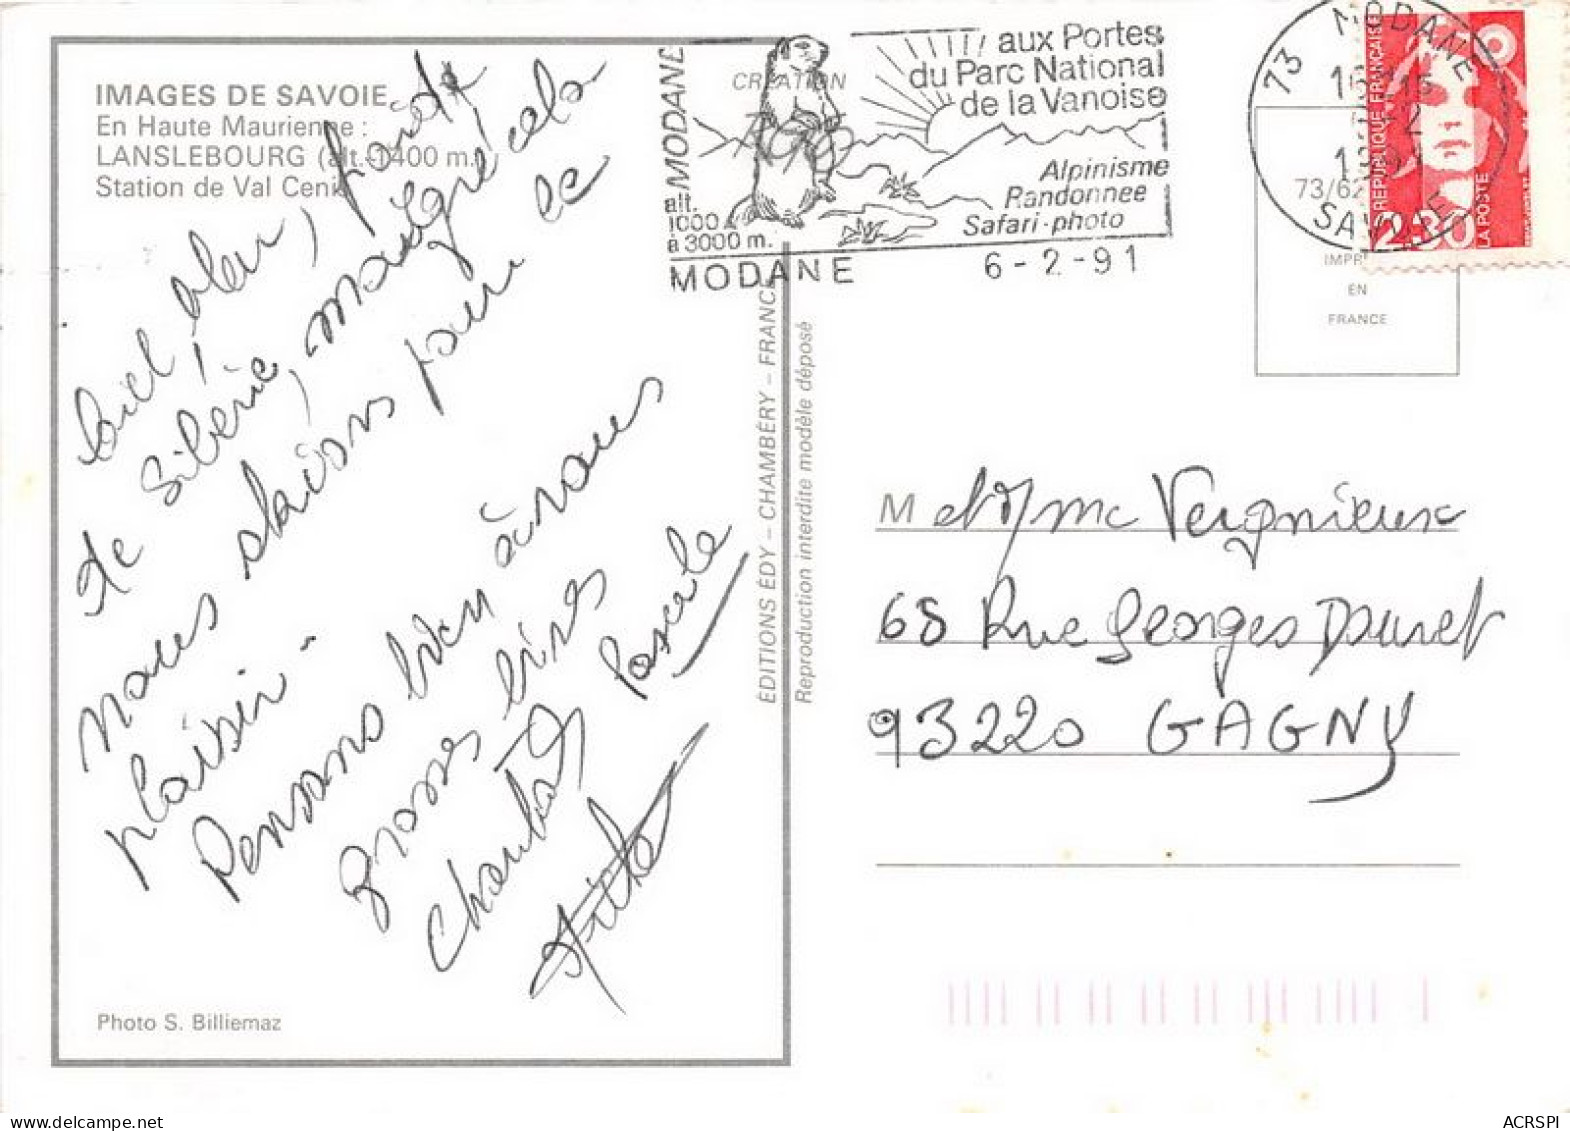 IMAGES DE SAVOIE
En Haute Maurienne :
LANSLEBOURG (alt. 1400 m.)
Station de Val Cenis
Ciel bleu, froid
de Sibérie, malgré cela
nous skaisons pour le
plaisir -
Pensons bien à vous
grosses bises
Chantal Pascale
Photo S. Billiemaz
ÉDITIONS ÉDY - CHAMBÉRY - FRANCE
Reproduction interdite modèle déposé
CRÉATION
MODANE
alt.
1000
à 3000 m.
aux Portes
du Parc National
de la Vanoise
Alpinisme
Randonnee
Safari-photo
MODANE 6-2-91
73 MODANE
SAVOIE
RÉPUBLIQUE FRANÇAISE
2,30
LA POSTE
73/62
IMPR
EN
FRANCE
M et Mme Vergnieux
68 Rue Georges Dauret
93220 GAGNY
ACRSPI
delcampe.net